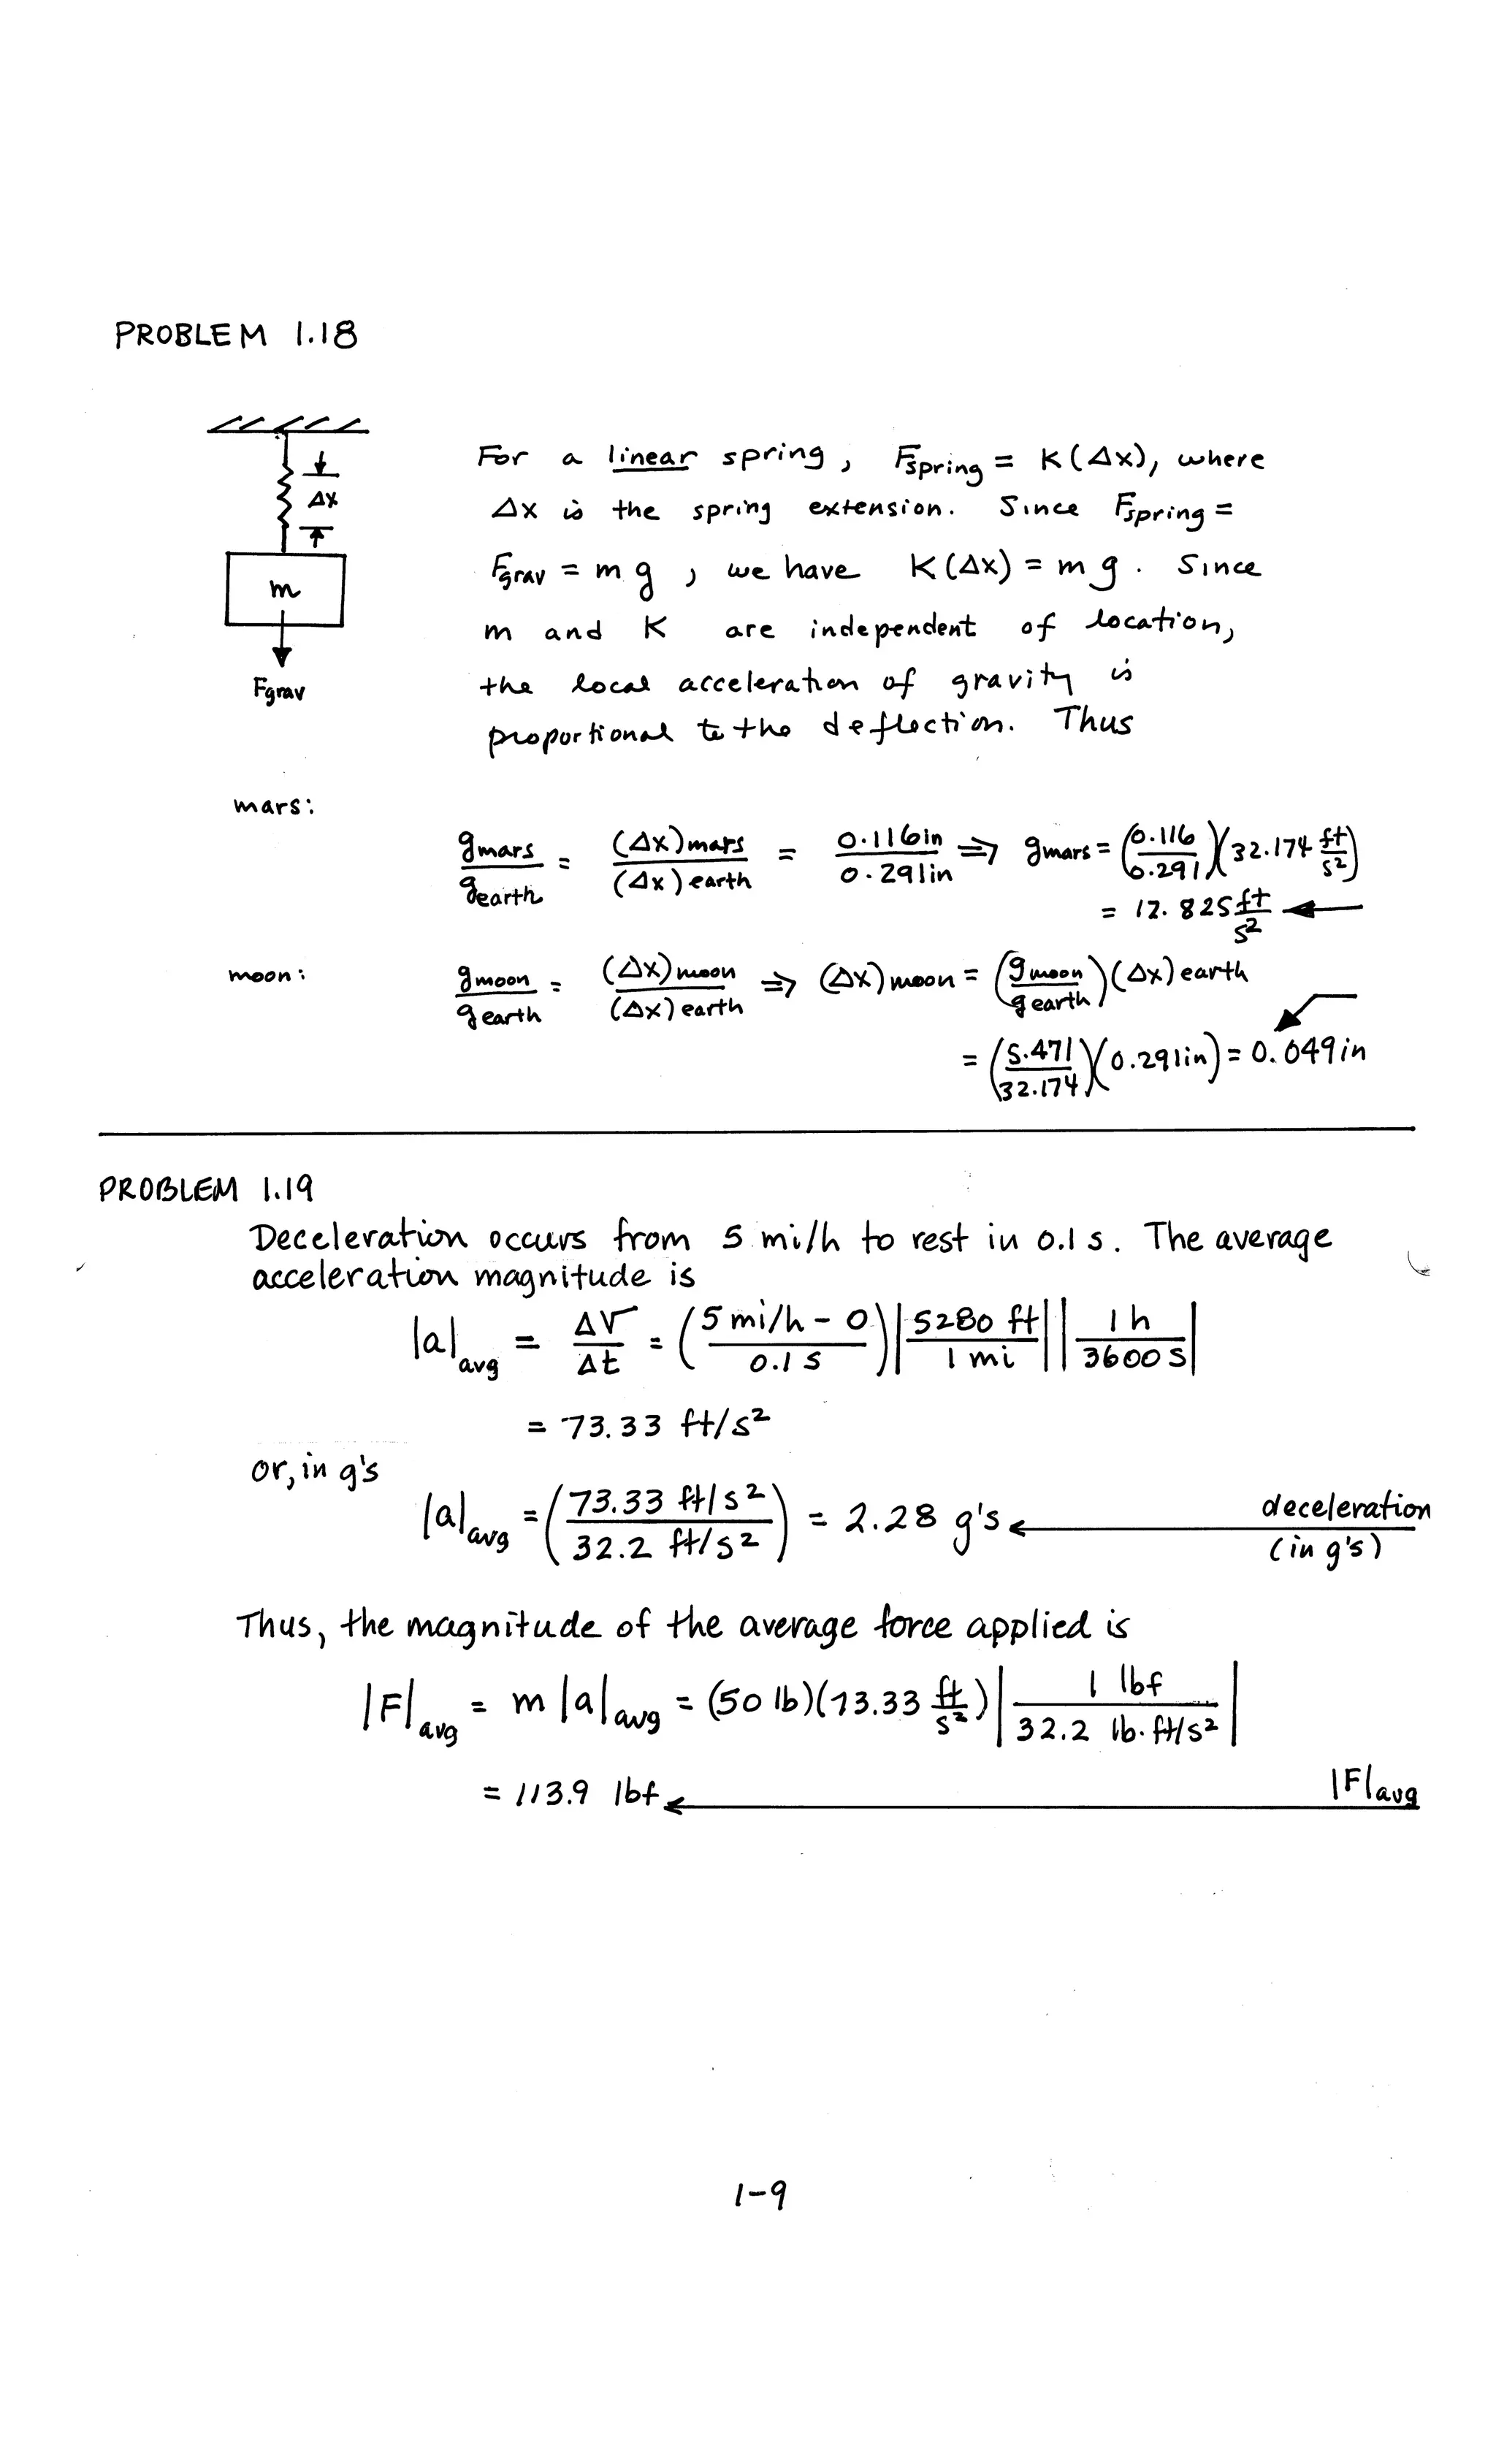 PROBLEM 1.18
Δx
m
Fgrav
For a linear spring, Fspring = K(Δx), where
Δx is the spring extension. Since Fspring =
Fgrav = mg, we have K(Δx) = mg. Since
m and K are independent of location,
the local acceleration of gravity is
proportional to the deflection. Thus
mars:
gmars/gearth = (Δx)mars/(Δx)earth = 0.116in/0.291in ⇒ gmars = (0.116/0.291)(32.174 ft/s²)
= 12.825 ft/s²
moon:
gmoon/gearth = (Δx)moon/(Δx)earth ⇒ (Δx)moon = (gmoon/gearth)(Δx)earth
= (5.471/32.174)(0.291in) = 0.049in
PROBLEM 1.19
Deceleration occurs from 5 mi/h to rest in 0.1 s. The average
acceleration magnitude is
|a|avg = ΔV/Δt = (5 mi/h - 0/0.1 s)|5280 ft/1 mi||1 h/3600 s|
= 73.33 ft/s²
or, in g's
|a|avg = (73.33 ft/s²/32.2 ft/s²) = 2.28 g's ← deceleration (in g's)
Thus, the magnitude of the average force applied is
|F|avg = m|a|avg = (50 lb)(73.33 ft/s²)|1 lbf/32.2 lb·ft/s²|
= 113.9 lbf ← |F|avg
1-9